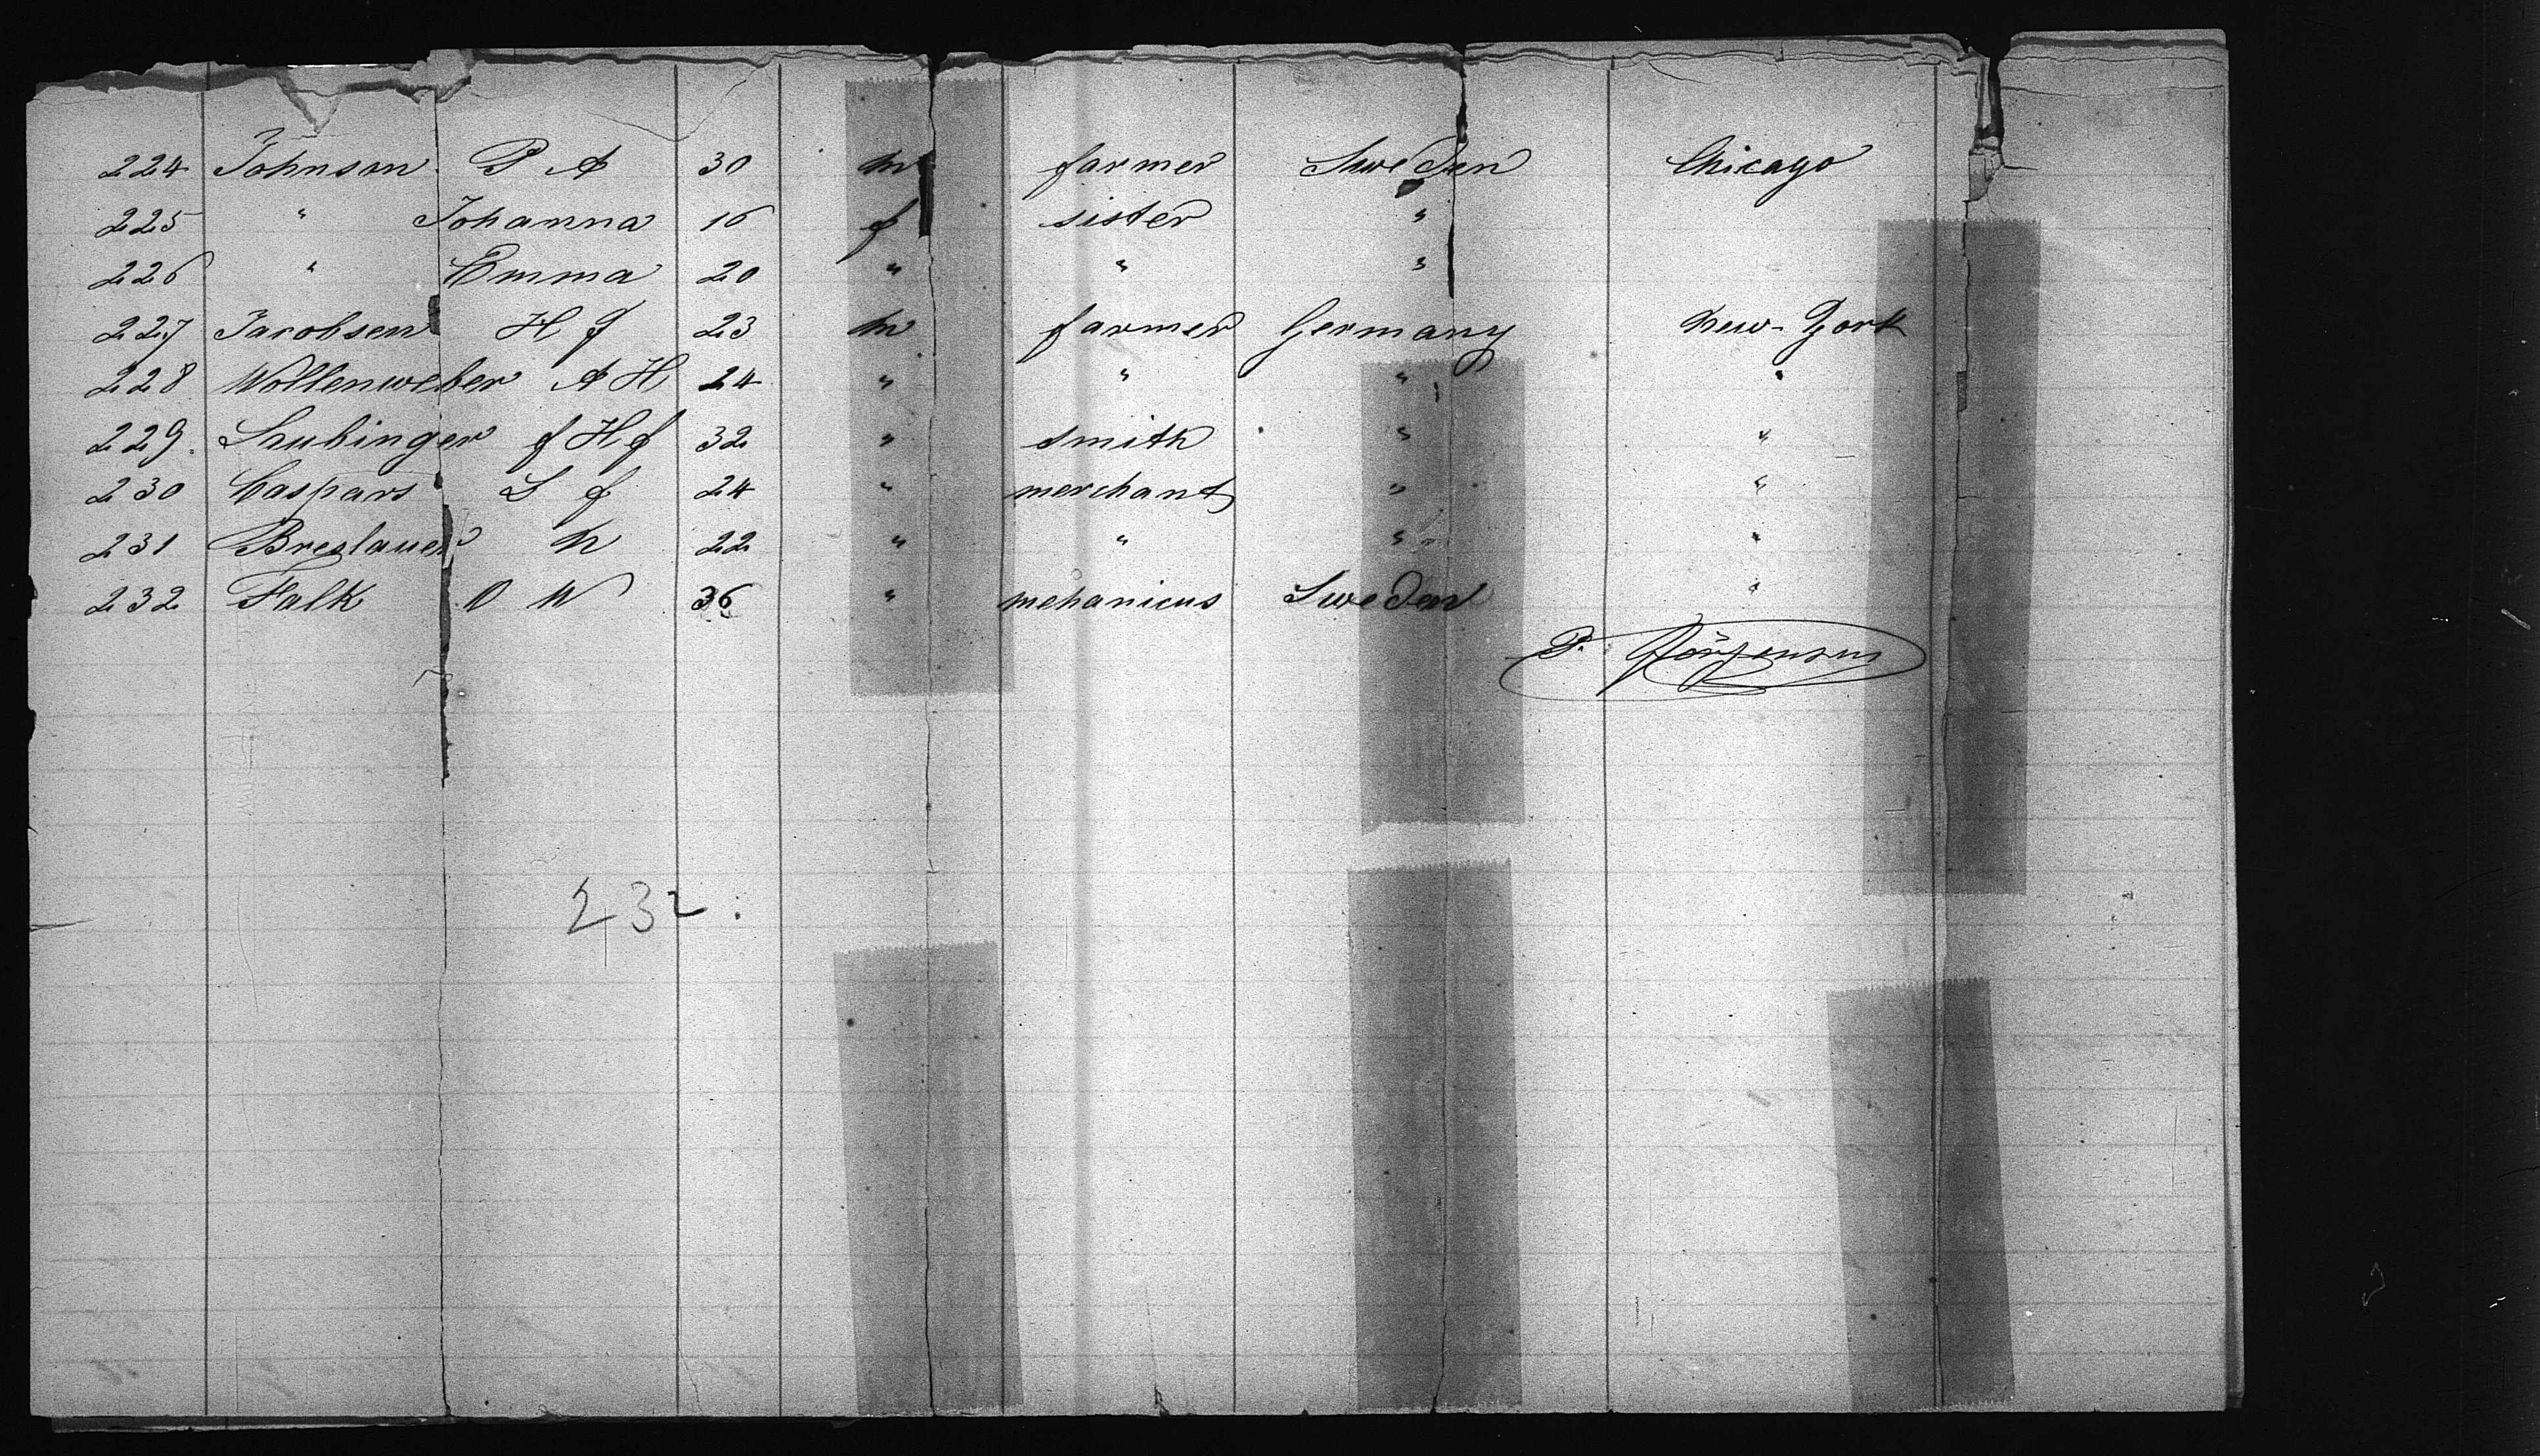 224 Johnson P A 30 m farmer Sweden Chicago
225 " Johanna 16 f sister "
226 " Emma 20 " " "
227 Jacobsen H J 23 m farmer Germany New-York
228 Wollenweber A H 24 " " " "
229. f H f 32 " smith " "
230 Caspars L f 24 " merchant " "
231 Breslauer N 22 " " " "
232 Falk O W 36 " mehanicus Sweden "
P. Jörgensen
232